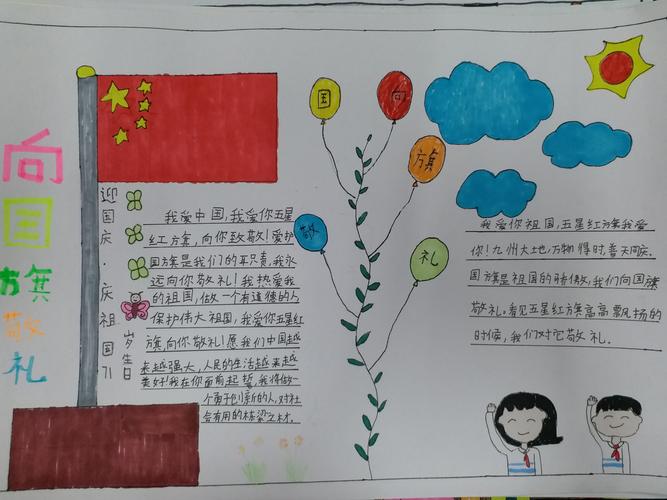 向
国
旗
敬
礼
迎国庆·庆祖国71
岁生日
我爱中国,我爱你五星
红旗,向你致敬!爱护
国旗是我们的职责,我永
远向你敬礼!我热爱我
的祖国,做一个有道德的人
保护伟大祖国,我爱你五星红
旗,向你敬礼!愿我们中国越
来越强大,人民的生活越来越
美好!我在你面前起誓,我将做一
个勇于创新的人,对社
会有用的栋梁之材.
国
向
旗
敬
礼
我爱你祖国,五星红旗我爱
你!九州大地,万物得时,普天同庆.
国旗是祖国的骄傲,我们向国旗
敬礼.看见五星红旗高高飘扬的
时候,我们对它敬礼.